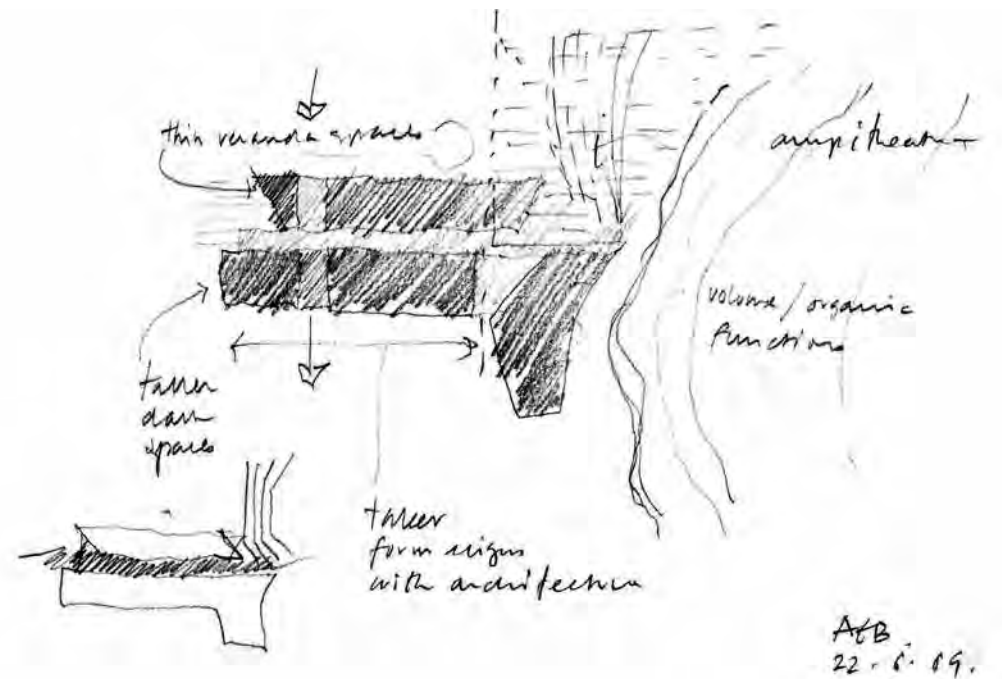 thin veranda spaces
ampitheatre
volume / organic
functions
taller
dark
spaces
taller
form aligns
with architecture
AtB
22.